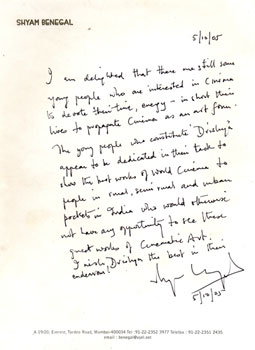 SHYAM BENEGAL
5/10/05
I am delighted that there are still some
young people who are interested in Cinema
to devote their time, energy – in short their
lives to propagate Cinema as an art form.
The young people who constitute "Drishya"
appear to be dedicated in their task to
show the best works of world Cinema to
people in rural, semi rural and urban
pockets in India who would otherwise
not have any opportunity to see these
great works of Cinematic Art.
I wish Drishya the best in their
endeavour!
5/10/05
Road, Mumbai-400034 Tel : 91-22-2352 3977 Telefax : 91-22-2351 2435
email : benegal@vsnl.net